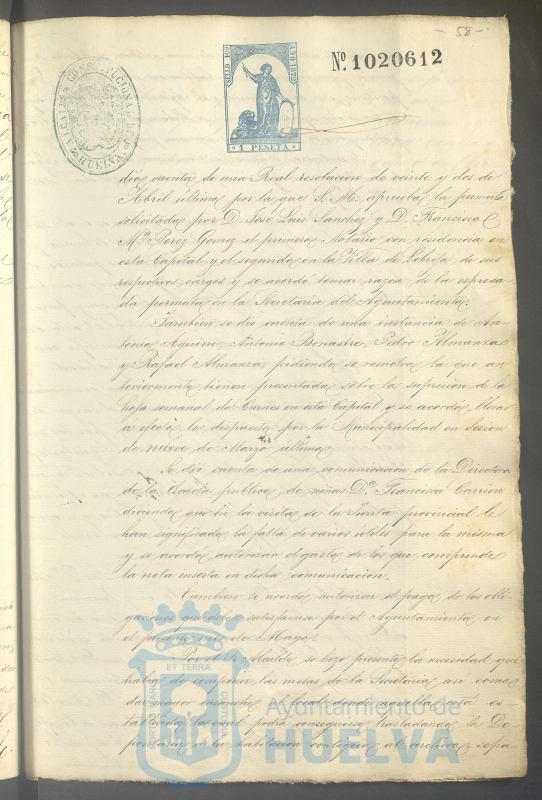 - 58 -
SELLO 10º AÑO 1875
1 PESETA
Nº 1020612
ALCALDIA CONSTITUCIONAL
HUELVA
dió cuenta de una Real resolucion de veinte y dos de
Abril último por la que S. M. aprueba la permuta
solicitada por D. José Luis Sanchez y D. Francisco
Mª Perez Gomez el primero Notario con residencia en
esta Capital y el segundo en la Villa de Lebrija de sus
respectivos cargos y se acordó tomar razon de la espresa-
da permuta en la Secretaria del Ayuntamiento.
Tambien se dió cuenta de una instancia de An-
tonio Aguirre, Antonio Benastre, Pedro Almanza
y Rafael Almanza, pidiendo se resuelva la que an-
teriormente tienen presentada sobre la supresion de la
hoja semanal de Carnes en esta Capital y se acordó, llevar
a efecto lo dispuesto por la Municipalidad en Sesion
de nueve de Marzo último.
Se dió cuenta de una comunicacion de la Directora
de la Escuela publica de niñas Dª Francisca Carrion
diciendo que en la visita de la Junta provincial le
han significado la falta de varios útiles para la misma
y se acordó autorizar el gasto de los que comprende
la nota inserta en dicha comunicacion.
Tambien se acordó autorizar el pago de las obli-
gaciones que debe satisfacer por el Ayuntamiento en
el presente mes de Mayo.
Por el Sr. Alcalde se hizo presente la necesidad que
habia de componer las mesas de la Secretaria asi como
dar mayor ensanche al local en que aquella está es-
tablecida lo cual podrá conseguirse trasladando la De-
positaria a la habitacion contigua al archivo, sepa-
ET TERRÆ
Ayuntamiento de
HUELVA